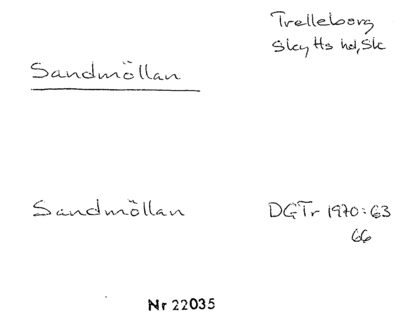 Trelleborg
Skytts hd, Sk
Sandmöllan
Sandmöllan DGTr 1970:63
66
Nr 22035